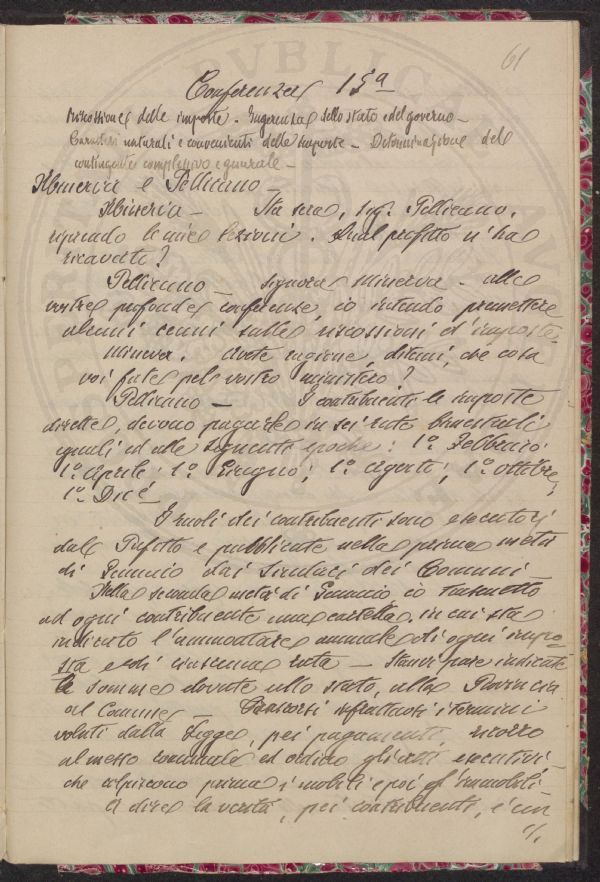 61
Conferenza 15ª
Riscossione delle imposte - Ingerenza dello stato e del governo -
Caratteri naturali e convenienti delle imposte - Determinazione del
contingente complessivo e generale -
Minerva e Pellicano -
Minerva - Sta sera, sig. Pellicano,
riprendo le mie lezioni. Qual profitto n'ha
ricavato?
Pellicano - Signora Minerva - alle
vostre profonde conferenze, io intendo premettere
alcuni cenni sulle riscossioni d'imposte
Minerva. Avete ragione, ditemi, che cosa
voi fate pel vostro ministero?
Pellicano - I contribuenti le imposte
dirette, devono pagarle in sei rate bimestrali
uguali ed alle seguenti epoche: 1º Febbraio;
1º Aprile; 1º Giugno; 1º Agosto; 1º Ottobre,
1º Dice
I ruoli dei contribuenti sono esecutorj
dal Prefetto e pubblicate nella prima metà
di Gennaio dai Sindaci dei Comuni -
Nella seconda metà di Gennaio, io trasmetto
ad ogni contribuente una cartella, in cui sta
indicato l'ammontare annuale di ogni impo-
sta e di ciascuna rata - Stanvi pare indicate
le somme dovute allo stato, alla Provincia
al Comune - Trascorsi infruttuosi i termini
voluti dalla Legge, pei pagamenti, ricorro
al messo comunale, ed ordino gli atti esecutivi
che colpiscono prima i mobili e poi gl'immobili -
A dire la verità, pei contribuenti, è un